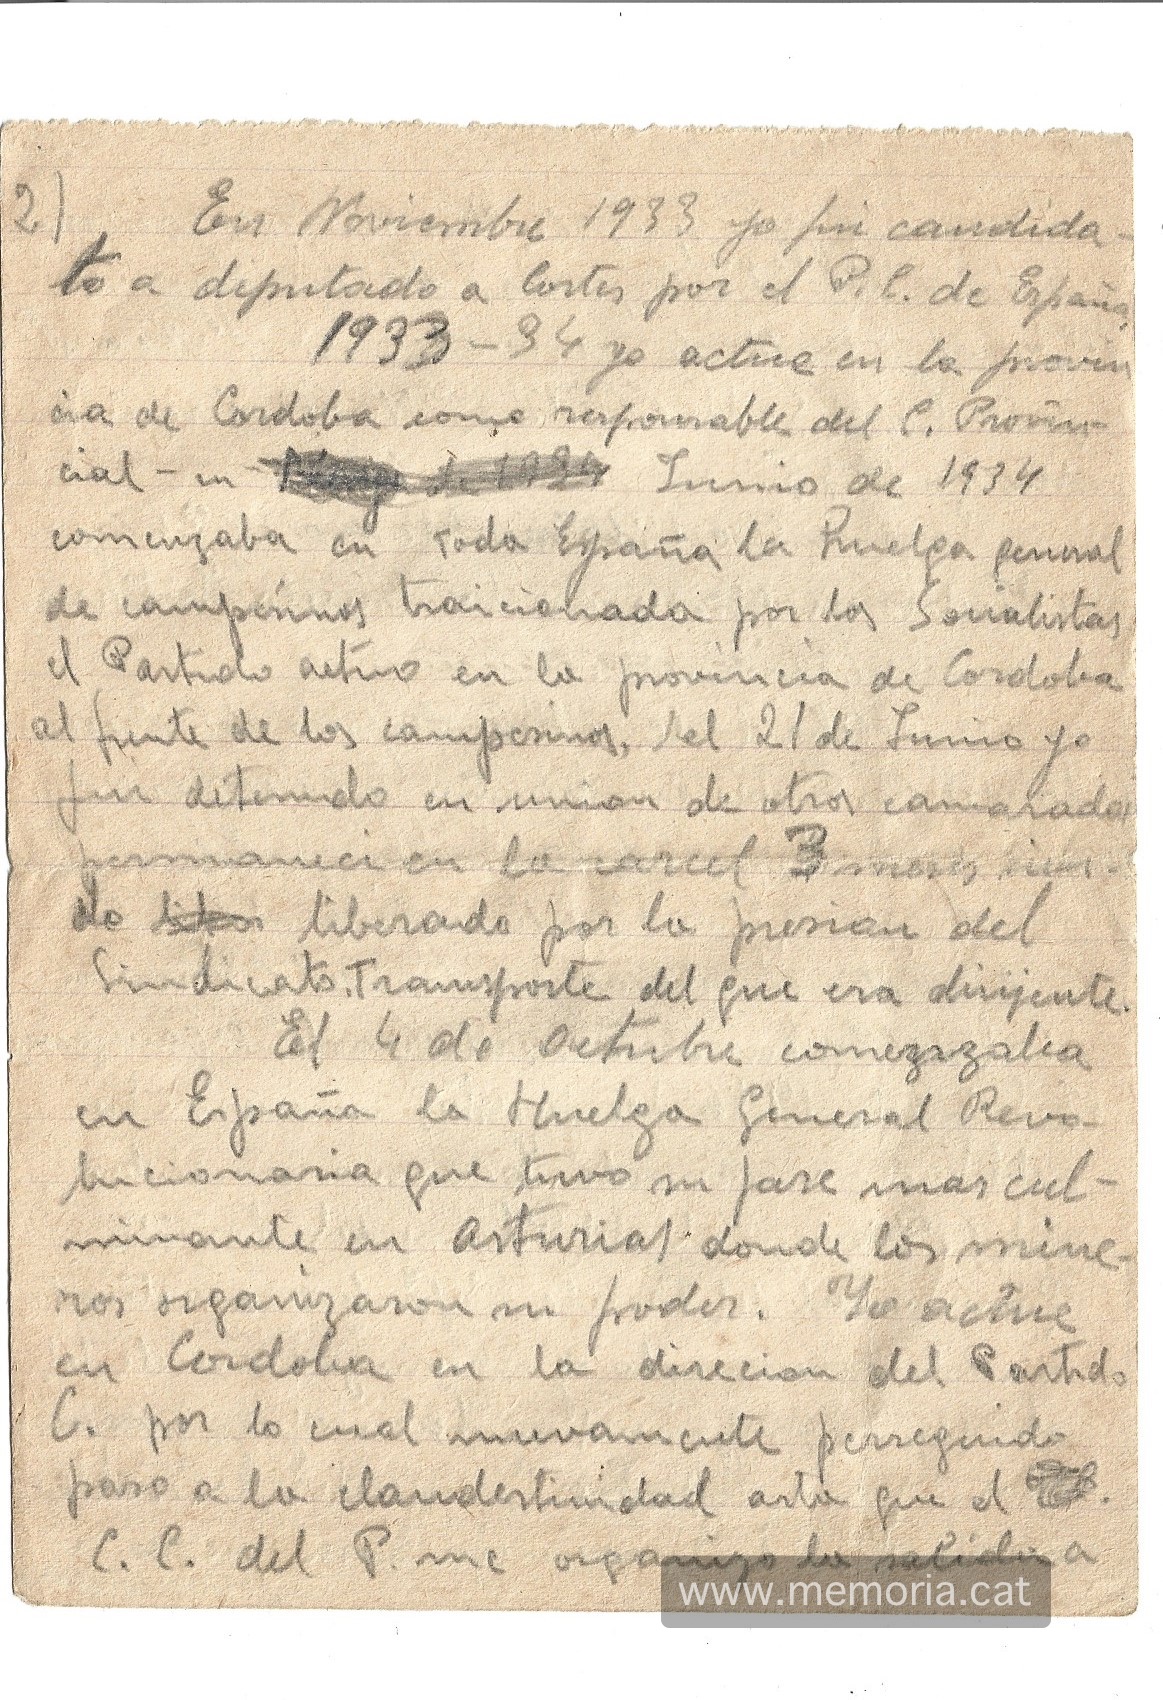 2) En Noviembre 1933 yo fui candida-
to a diputado a Cortes por el P.C. de España,
1933-34 yo actue en la provin
cia de Cordoba como responsable del C. Provin-
cial - en Mayo de 1934 Junio de 1934
comenzaba en toda España la Huelga general
de campesinos traicionada por los Socialistas
el Partido actuo en la provincia de Cordoba
al frente de los campesinos, el 21 de Junio yo
fui detenido en union de otros camaradas
permaneci en la carcel 3 meses sien-
do liberado por la presian del
Sindicato.Transporte del que era dirijente.
El 4 de Octubre comezazaba
en España la Huelga General Revo-
lucionaria que tuvo su fase mas cul-
minante en Asturias donde los mine-
ros organizaron su poder. Yo actue
en Cordoba en la direcion del Partido
C. por lo cual nuevamente perseguido
paso a la clandestinidad asta que el
C. C. del P. me organizo la salida a
www.memoria.cat